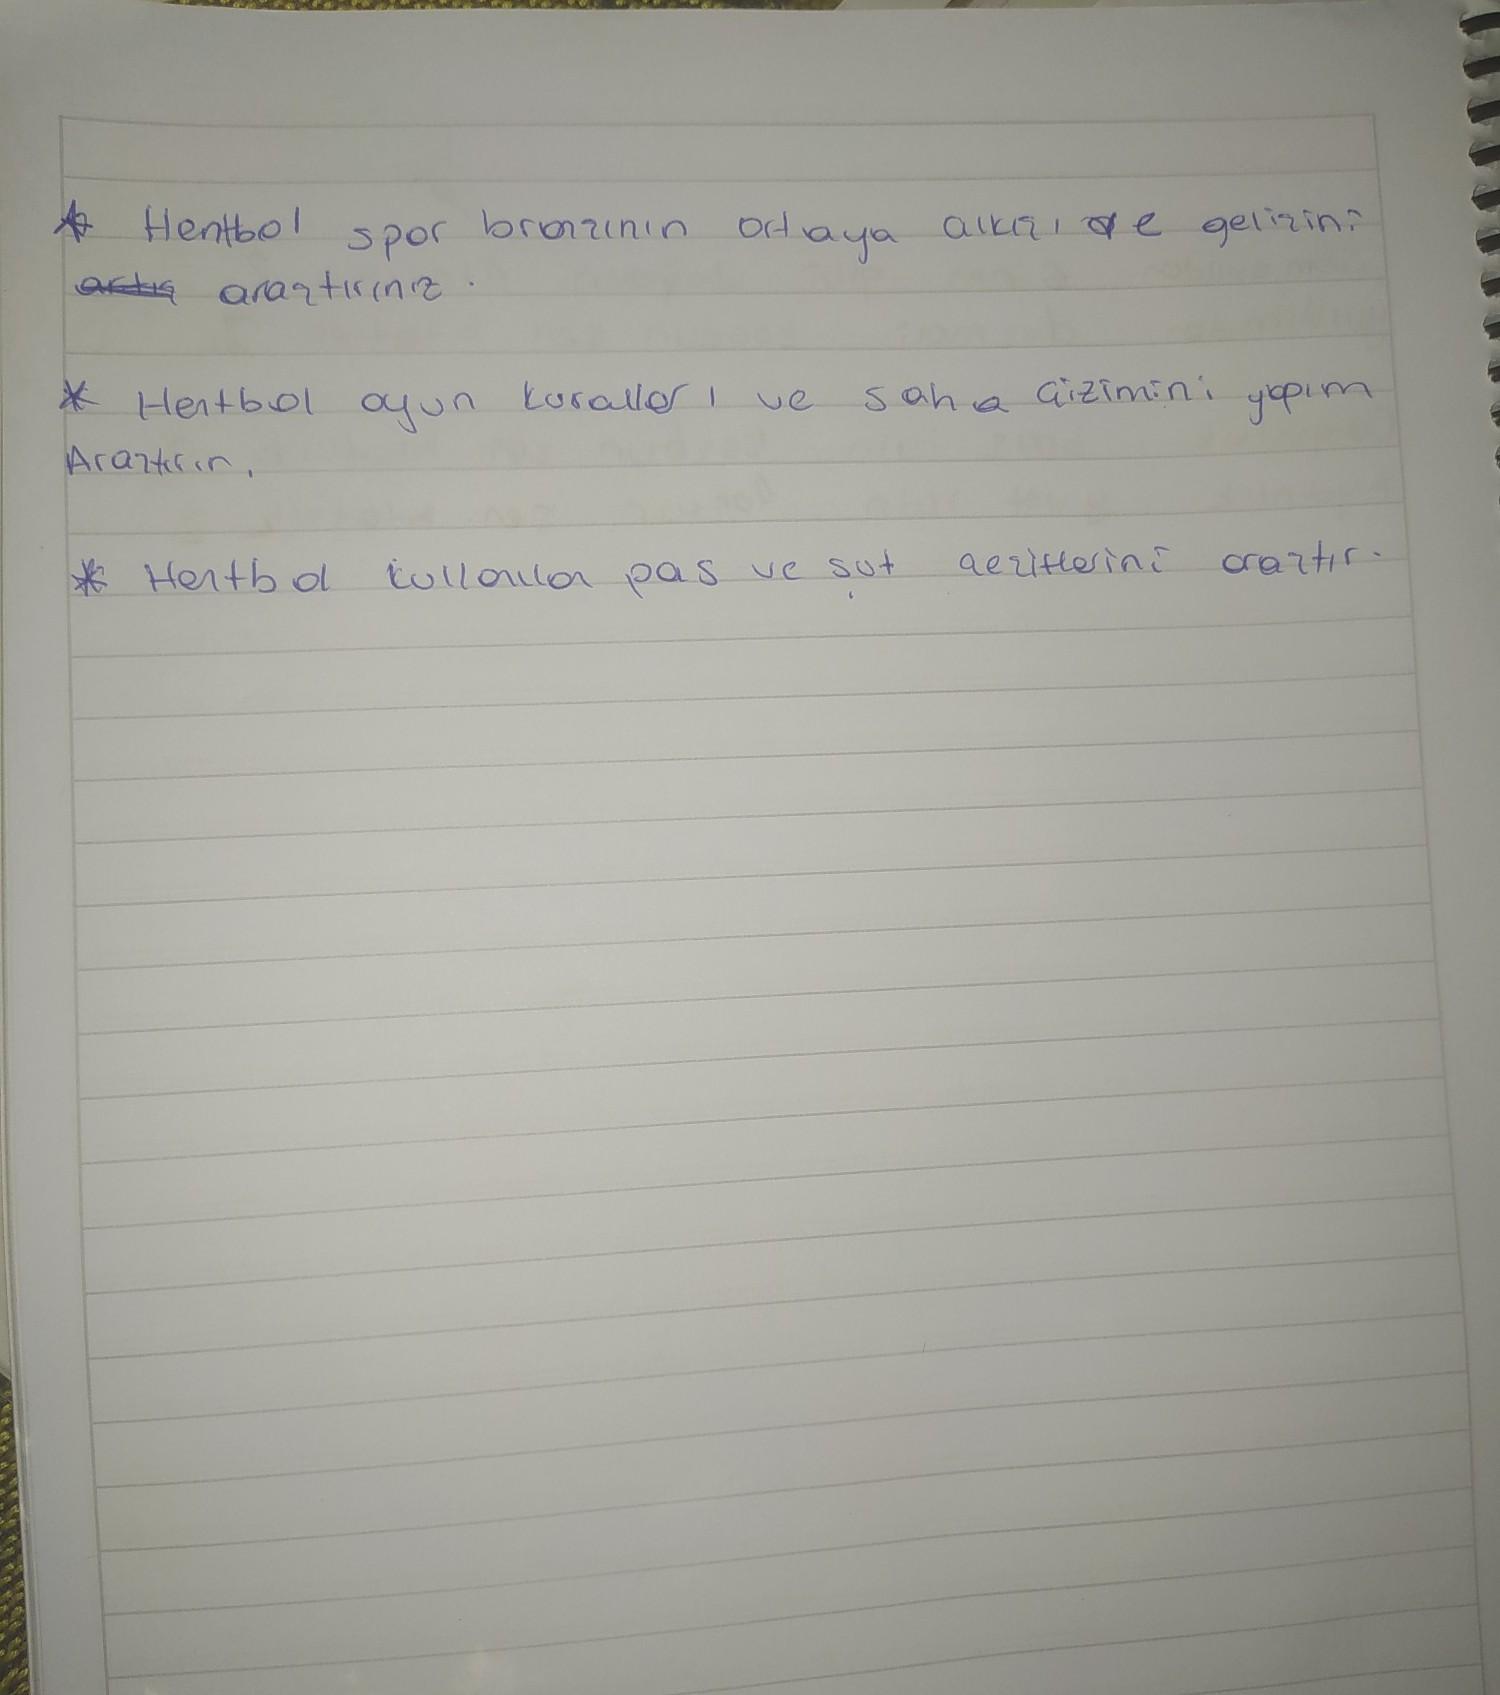 * Hentbol spor branşının ortaya çıkışı ve gelişini
araştırınız.
* Hentbol oyun kuralları ve saha çizimini yapım
Araştırın.
* Hentbol kullanılan pas ve şut çeşitlerini araştır.